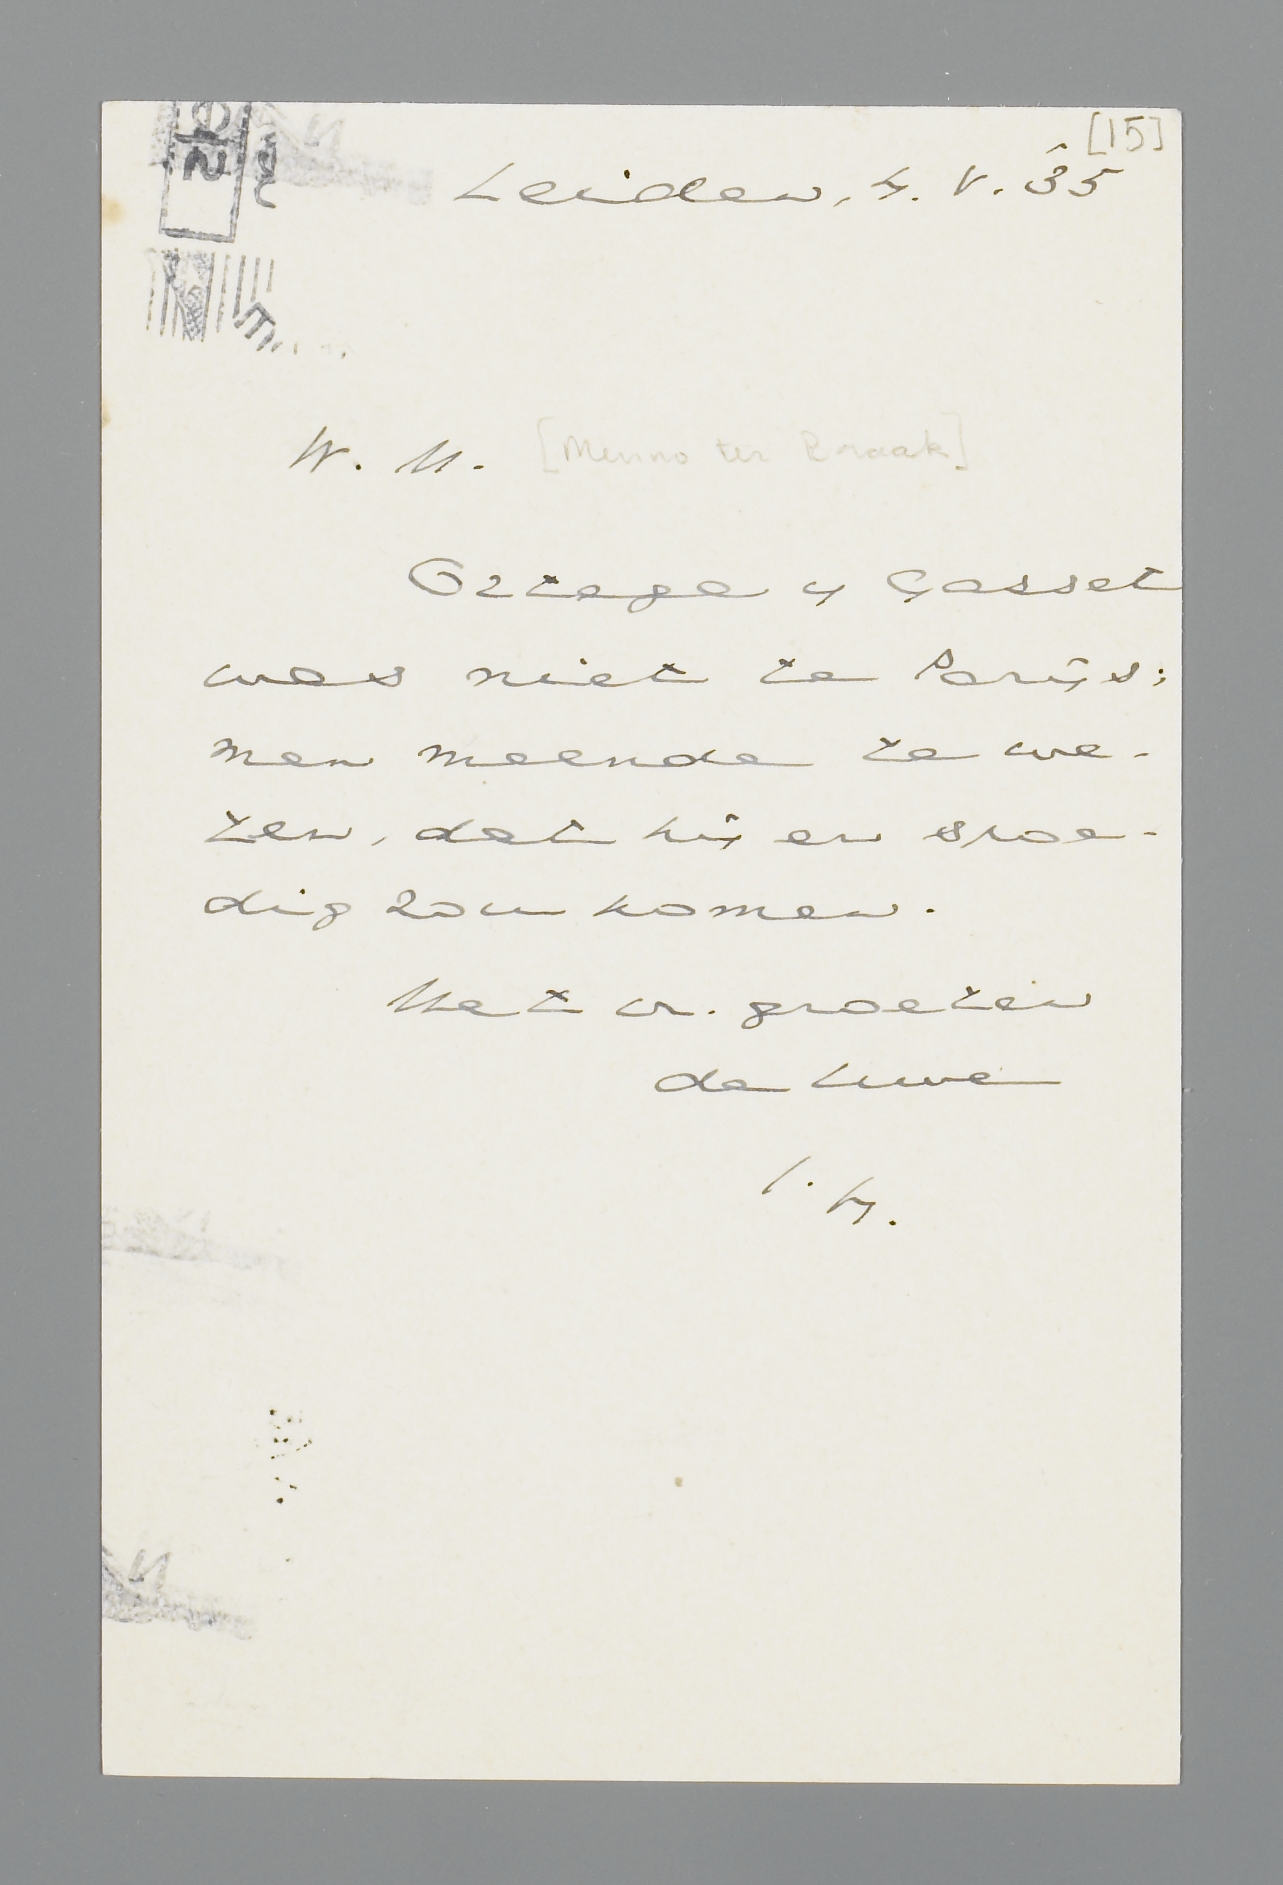 [15]
Leiden, 4. V. 35
W. M. [Menno ter Braak]
Ortega y Gasset
was niet te Parijs;
men meende te we-
ten, dat hij er spoe-
dig zou komen.
Met vr. groeten
de Uwe
J. H.